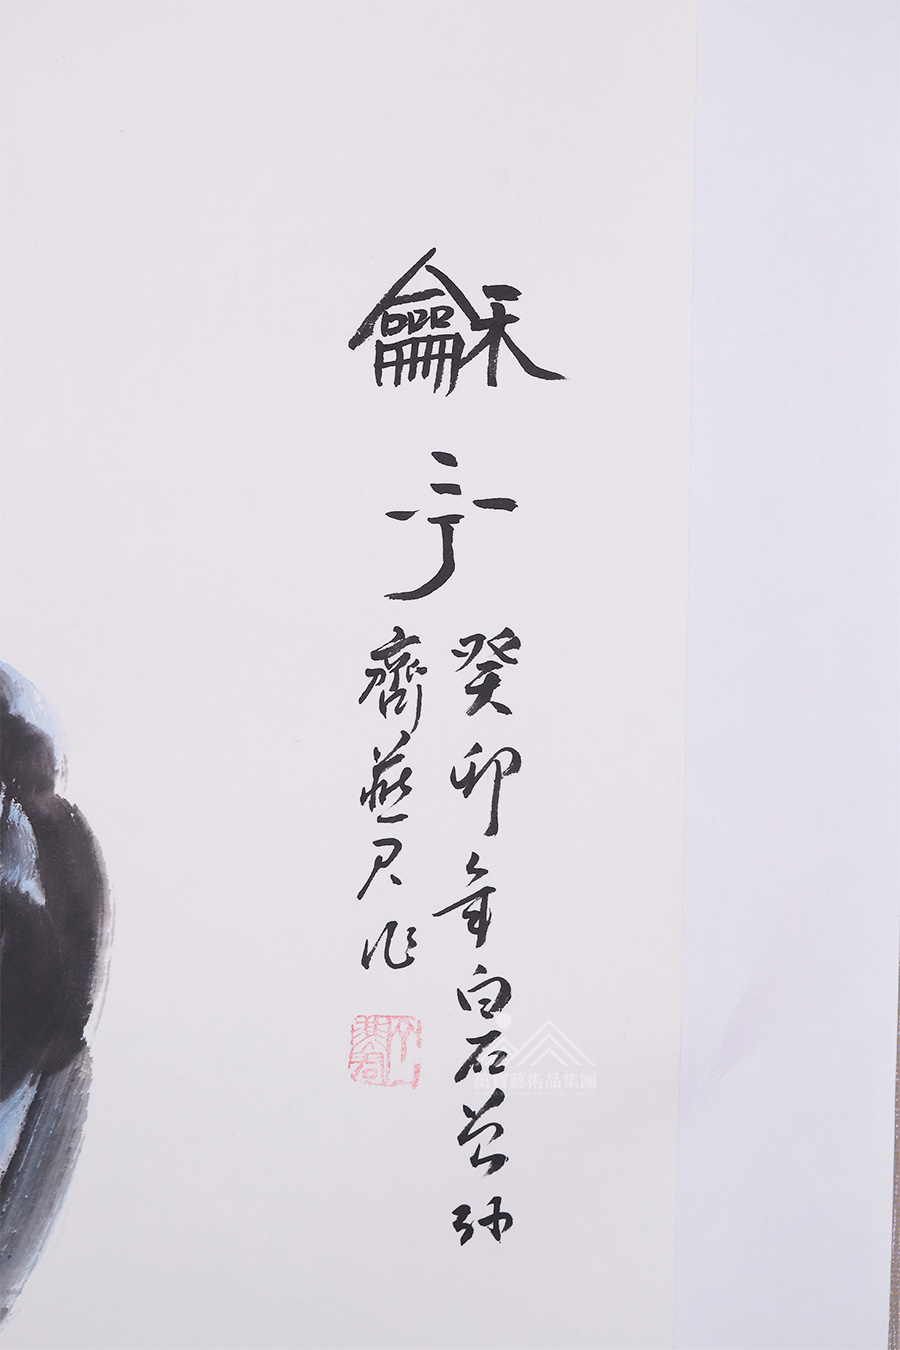 龢平
癸卯年白石曾孫
齊燕君作
藝術品集團